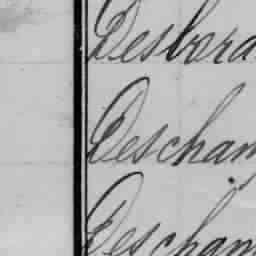 Desbora
Descham
Descham